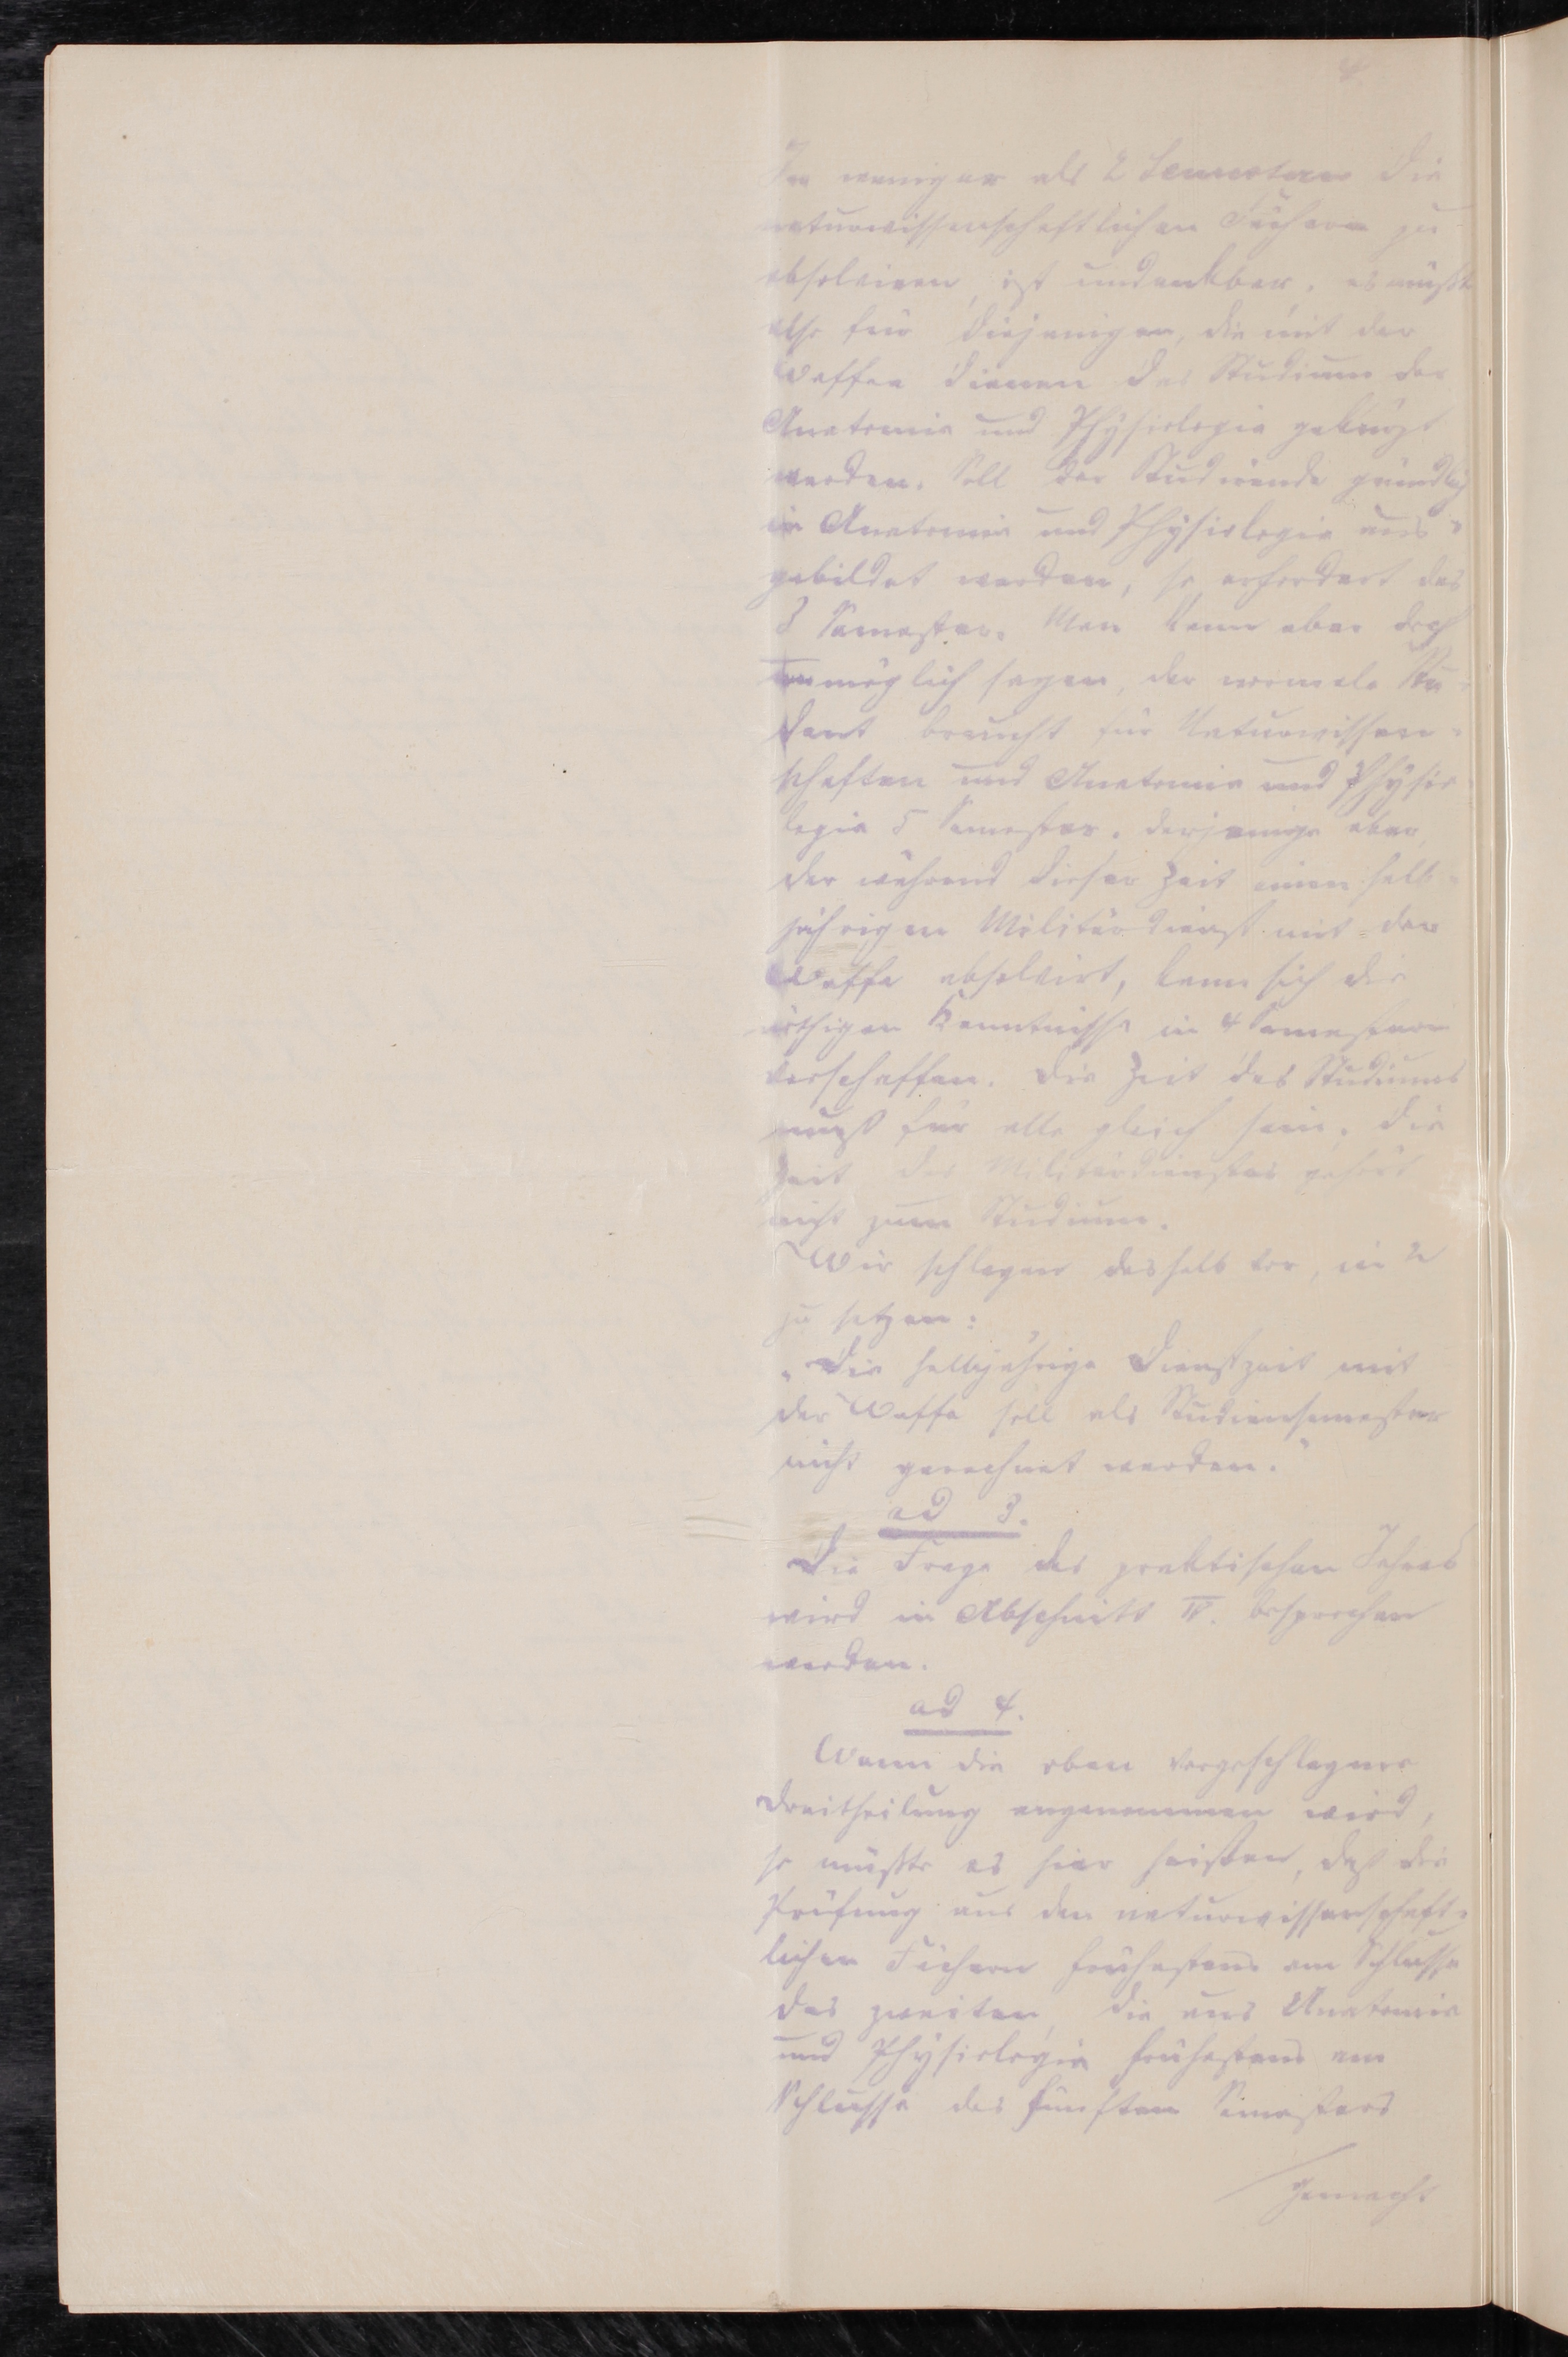 4.
In weniger als 2 Semestern die
naturwissenschaftlichen Fächer zu
absolviren, ist undenkbar, es müßte
also für diejenigen, die mit der
Waffe dienen das Studium der
Anatomie und Physiologie gekürzt
werden. Soll der Studirende gründlich
in Anatomie und Physiologie aus-
gebildet werden, so erfordert das
3 Semester. Man kann aber doch
unmöglich sagen, der normale Stu-
dent braucht für Naturwissen-
schaften und Anatomie und Physio-
logie 5 Semester, derjenige aber,
der während dieser Zeit einen halb-
jährigen Militärdienst mit der
Waffe absolvirt, kann sich die
nöthigen Kenntnisse in 4 Semestern
verschaffen. Die Zeit des Studiums
muß für alle gleich sein, die
Zeit des Militärdienstes gehört
nicht zum Studium.
Wir schlagen deshalb vor, in 2
zu setzen:
„Die halbjährige Dienstzeit mit
der Waffe soll als Studiensemester
nicht gerechnet werden."
ad 3.
Die Frage des praktischen Jahres
wird in Abschnitt IV. besprochen
werden.
ad 4.
Wenn die oben vorgeschlagene
Dreitheilung angenommen wird,
so müßte es hier heißen, daß die
Prüfung aus den naturwissenschaft-
lichen Fächern frühestens am Schlusse
des zweiten, die aus Anatomie
und Physiologie frühestens am
Schlusse des fünften Semesters
gemacht